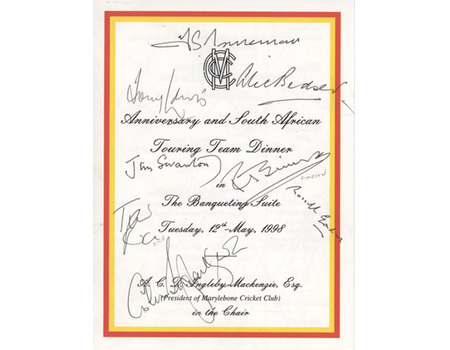 MCC
Alec Bedser
Tony Lewis
Anniversary and South African
Touring Team Dinner
Jim Swanton
in
The Banqueting Suite
Tuesday, 12th May, 1998
A. C. D. Ingleby-Mackenzie, Esq.
(President of Marylebone Cricket Club)
in the Chair